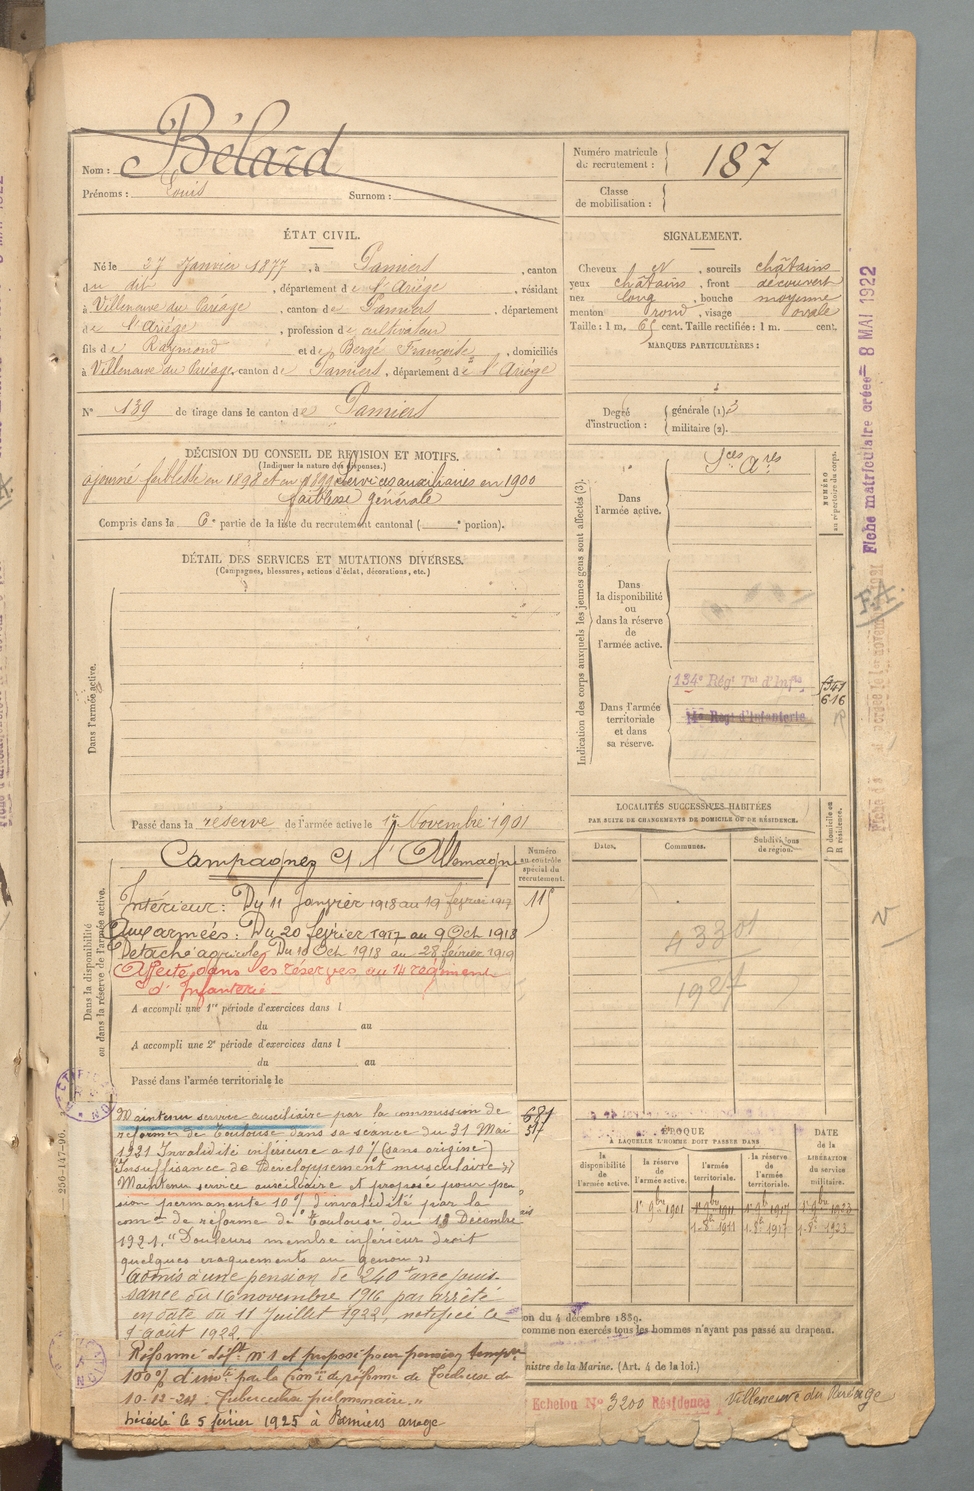 Nom : Bélard
Prénoms : Louis Surnom :
Numéro matricule
de recrutement : 187
Classe
de mobilisation :
ÉTAT CIVIL.
Né le 27 Janvier 1877, à Pamiers, canton
du dit, département de l'Ariège, résidant
à Villeneuve du Paréage, canton de Pamiers, département
de l'Ariège, profession de cultivateur
fils de Raymond et de Bergé Françoise, domiciliés
à Villeneuve du Paréage, canton de Pamiers, département de l'Ariège
N° 139 de tirage dans le canton de Pamiers
SIGNALEMENT.
Cheveux et, sourcils châtains
yeux châtains, front découvert
nez long, bouche moyenne
menton rond, visage ovale
Taille : 1 m. 65 cent. Taille rectifiée : 1 m. cent.
MARQUES PARTICULIÈRES :
Degré
d'instruction : générale (1) 3
militaire (2).
DÉCISION DU CONSEIL DE REVISION ET MOTIFS.
(Indiquer la nature des dispenses.)
ajourné faiblesse en 1898 et en 1899 Services auxiliaires en 1900
faiblesse générale
Compris dans la 6e partie de la liste du recrutement cantonal ( e portion).
DÉTAIL DES SERVICES ET MUTATIONS DIVERSES.
(Campagnes, blessures, actions d'éclat, décorations, etc.)
Dans l'armée active.
Passé dans la réserve de l'armée active le 1er Novembre 1901
Indication des corps auxquels les jeunes gens sont affectés (3).
Dans
l'armée active.
Sces Ares
NUMÉRO
au répertoire du corps.
Dans
la disponibilité
ou
dans la réserve
de
l'armée active.
Dans l'armée
territoriale
et dans
sa réserve.
134e Régt Tal d'Infie
Régt d'Infanterie
6-16
Dans la disponibilité
ou dans la réserve de l'armée active.
Campagnes Ct l'Allemagne
Numéro
au contrôle
spécial du
recrutement.
115
Intérieur : Du 11 Janvier 1918 au 19 février 1917
Aux armées : Du 20 février 1917 au 9 Oct 1918
Détaché agricole Du 10 Oct 1918 au 28 février 1919
Affecté dans les réserves au 14 régiment
d'Infanterie
A accompli une 1re période d'exercices dans l
du au
A accompli une 2e période d'exercices dans l
du au
Passé dans l'armée territoriale le
LOCALITÉS SUCCESSIVES HABITÉES
PAR SUITE DE CHANGEMENTS DE DOMICILE OU DE RÉSIDENCE.
Dates. Communes. Subdivisions
de région.
D domicile ou
R résidence.
1927
Maintenu service auxiliaire par la commission de
réforme de Toulouse dans sa séance du 31 Mai
1921 Invalidité inférieure à 10% (sans origine)
Insuffisance de développement musculaire »
Maintenu service auxiliaire et proposé pour pen
sion permanente 10% d'invalidité par la
com on de réforme de Toulouse du 13 Décembre
1921. "Douleurs membre inférieur droit
quelques craquements au genou »
admis à une pension de 240 f avec jouis-
sance du 16 novembre 1916 par arrêté
en date du 11 Juillet 1922, notifiée le
août 1922.
Réformé déft n° 1 et proposé pour pension tempre
100% d'inv té par la Con on de réforme de Toulouse du
10-12-24. Tuberculose pulmonaire. "
Décédé le 5 février 1925 à Pamiers ariège
256-147-96.
ÉPOQUE
À LAQUELLE L'HOMME DOIT PASSER DANS
la
disponibilité
de
l'armée active.
la réserve
de
l'armée active.
l'armée
territoriale.
la réserve
de
l'armée
territoriale.
DATE
de la
LIBÉRATION
du service
militaire.
1er 9bre 1901 1er 9bre 1911 1er 9bre 1917 1er 9bre 1923
on du 4 décembre 1889.
comme non exercés tous les hommes n'ayant pas passé au drapeau.
nistre de la Marine. (Art. 4 de la loi.)
Echelon N° 3200 Résidence Villeneuve du Paréage
Fiche matriculaire créée 8 MAI 1922
F.A.